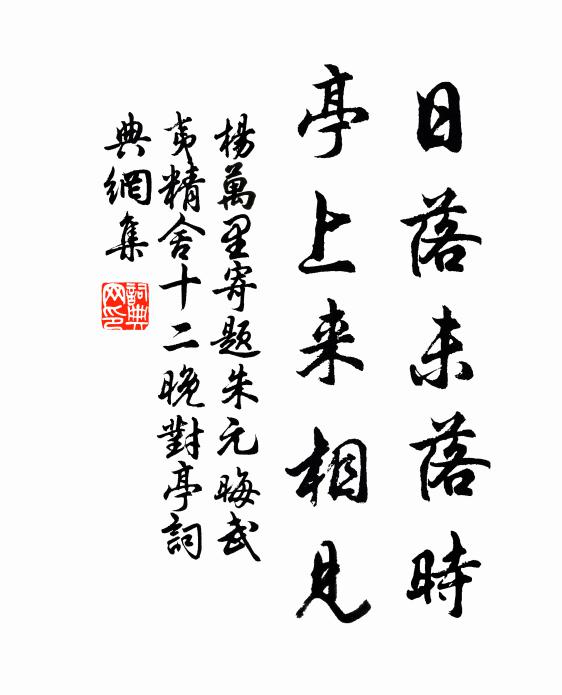 日落未落時
亭上来相見
楊萬里寄題朱元晦武
夷精舍十二晚對亭詞
典網集
詞典网印